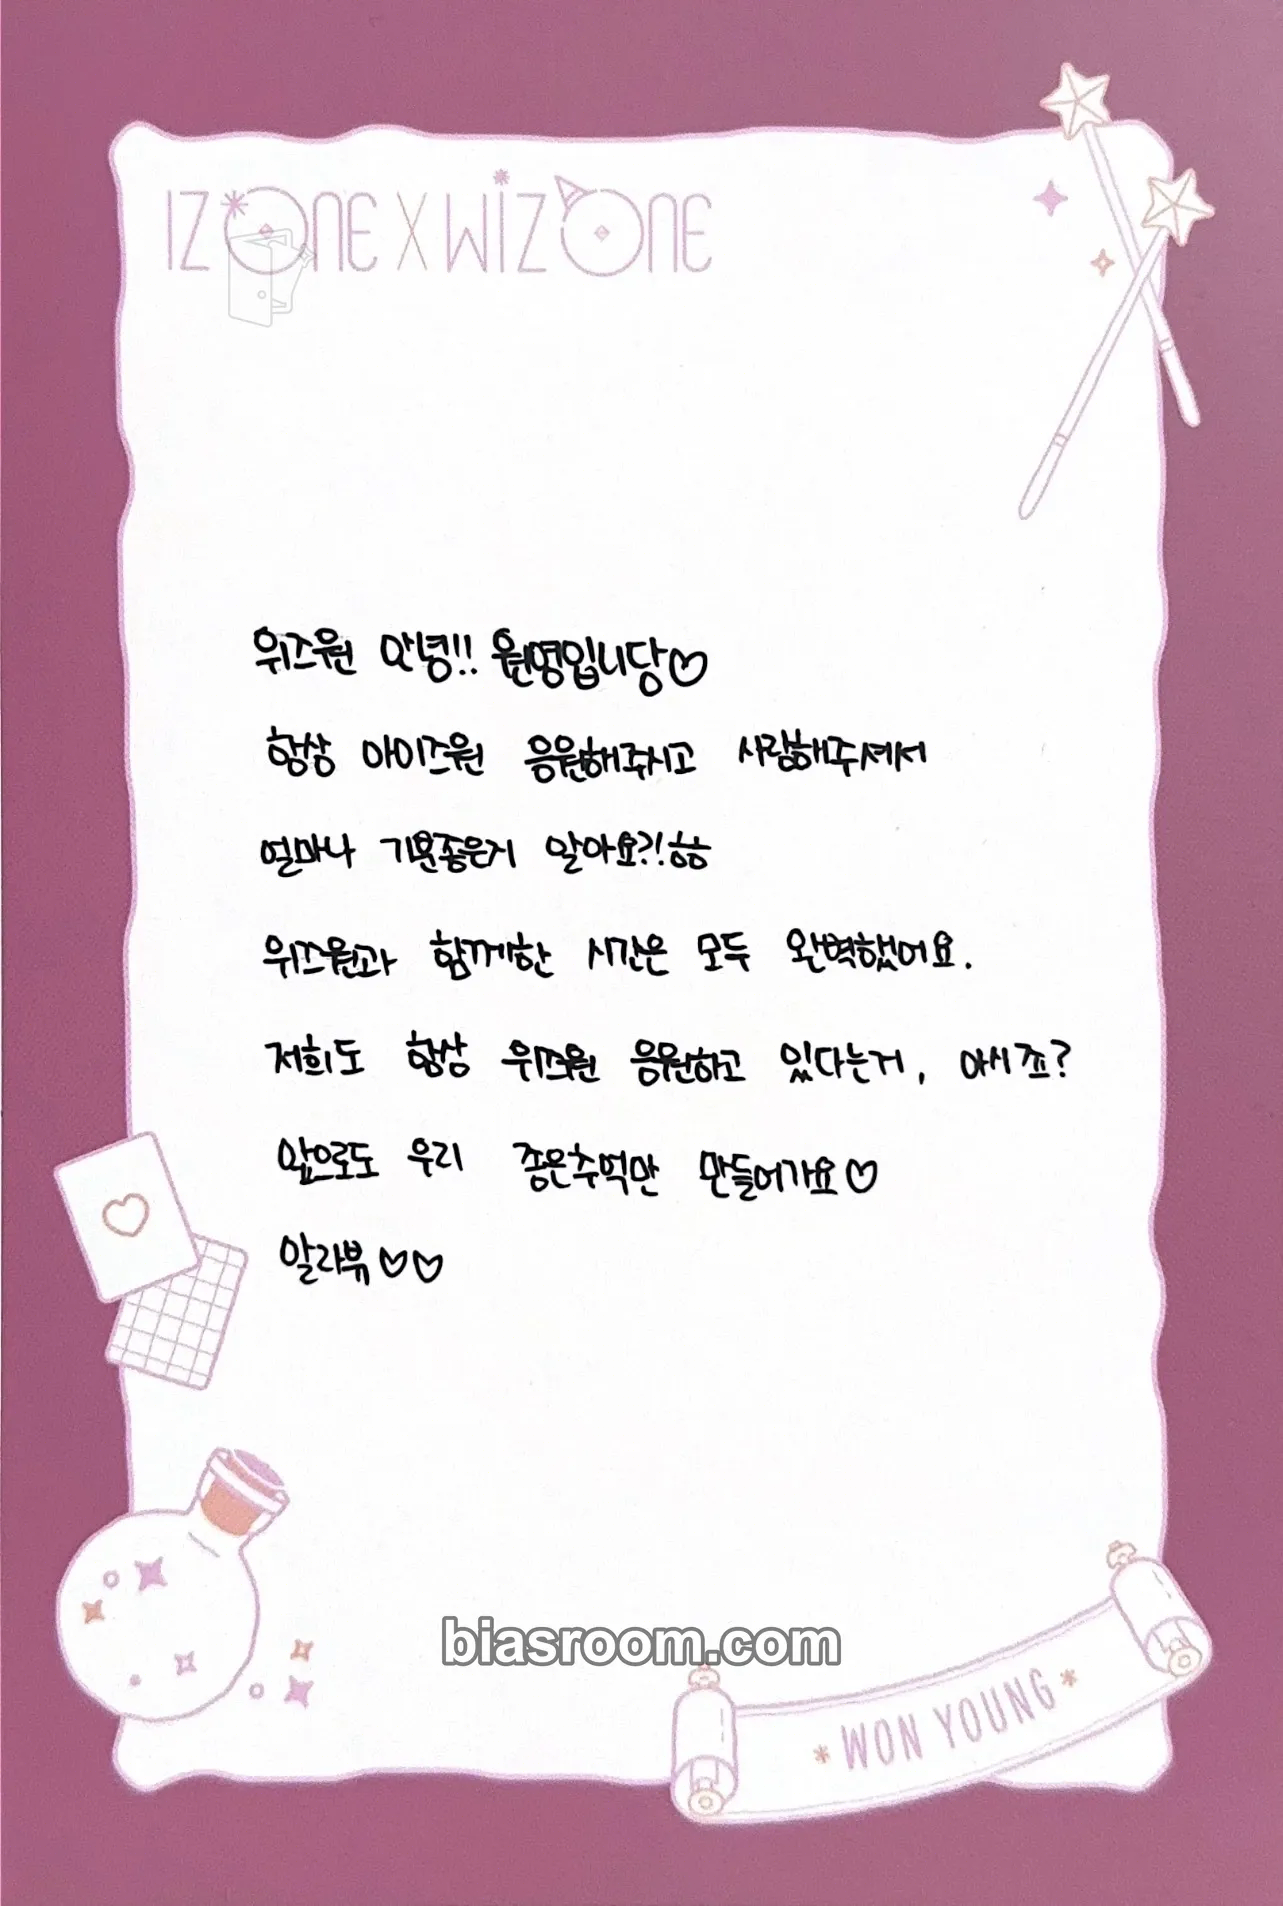 IZONE X WIZONE
위즈원 안녕!! 원영입니당♡
항상 아이즈원 응원해주시고 사랑해주셔서
얼마나 기분좋은지 알아요?!ㅎㅎ
위즈원과 함께한 시간은 모두 완벽했어요.
저희도 항상 위즈원 응원하고 있다는거, 아시죠?
앞으로도 우리 좋은추억만 만들어가요♡
알라뷰♡♡
biasroom.com
*WON YOUNG*